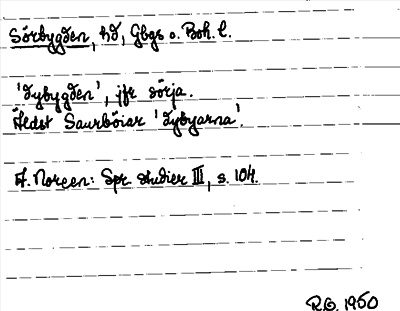 Sörbygden, hd, Gbgs o. Boh. l.
'Dybygden', jfr sörja.
Äldst Saurböiar 'Dybyarna'.
A. Noreen: Spr. studier III, s. 104.
R.O. 1950